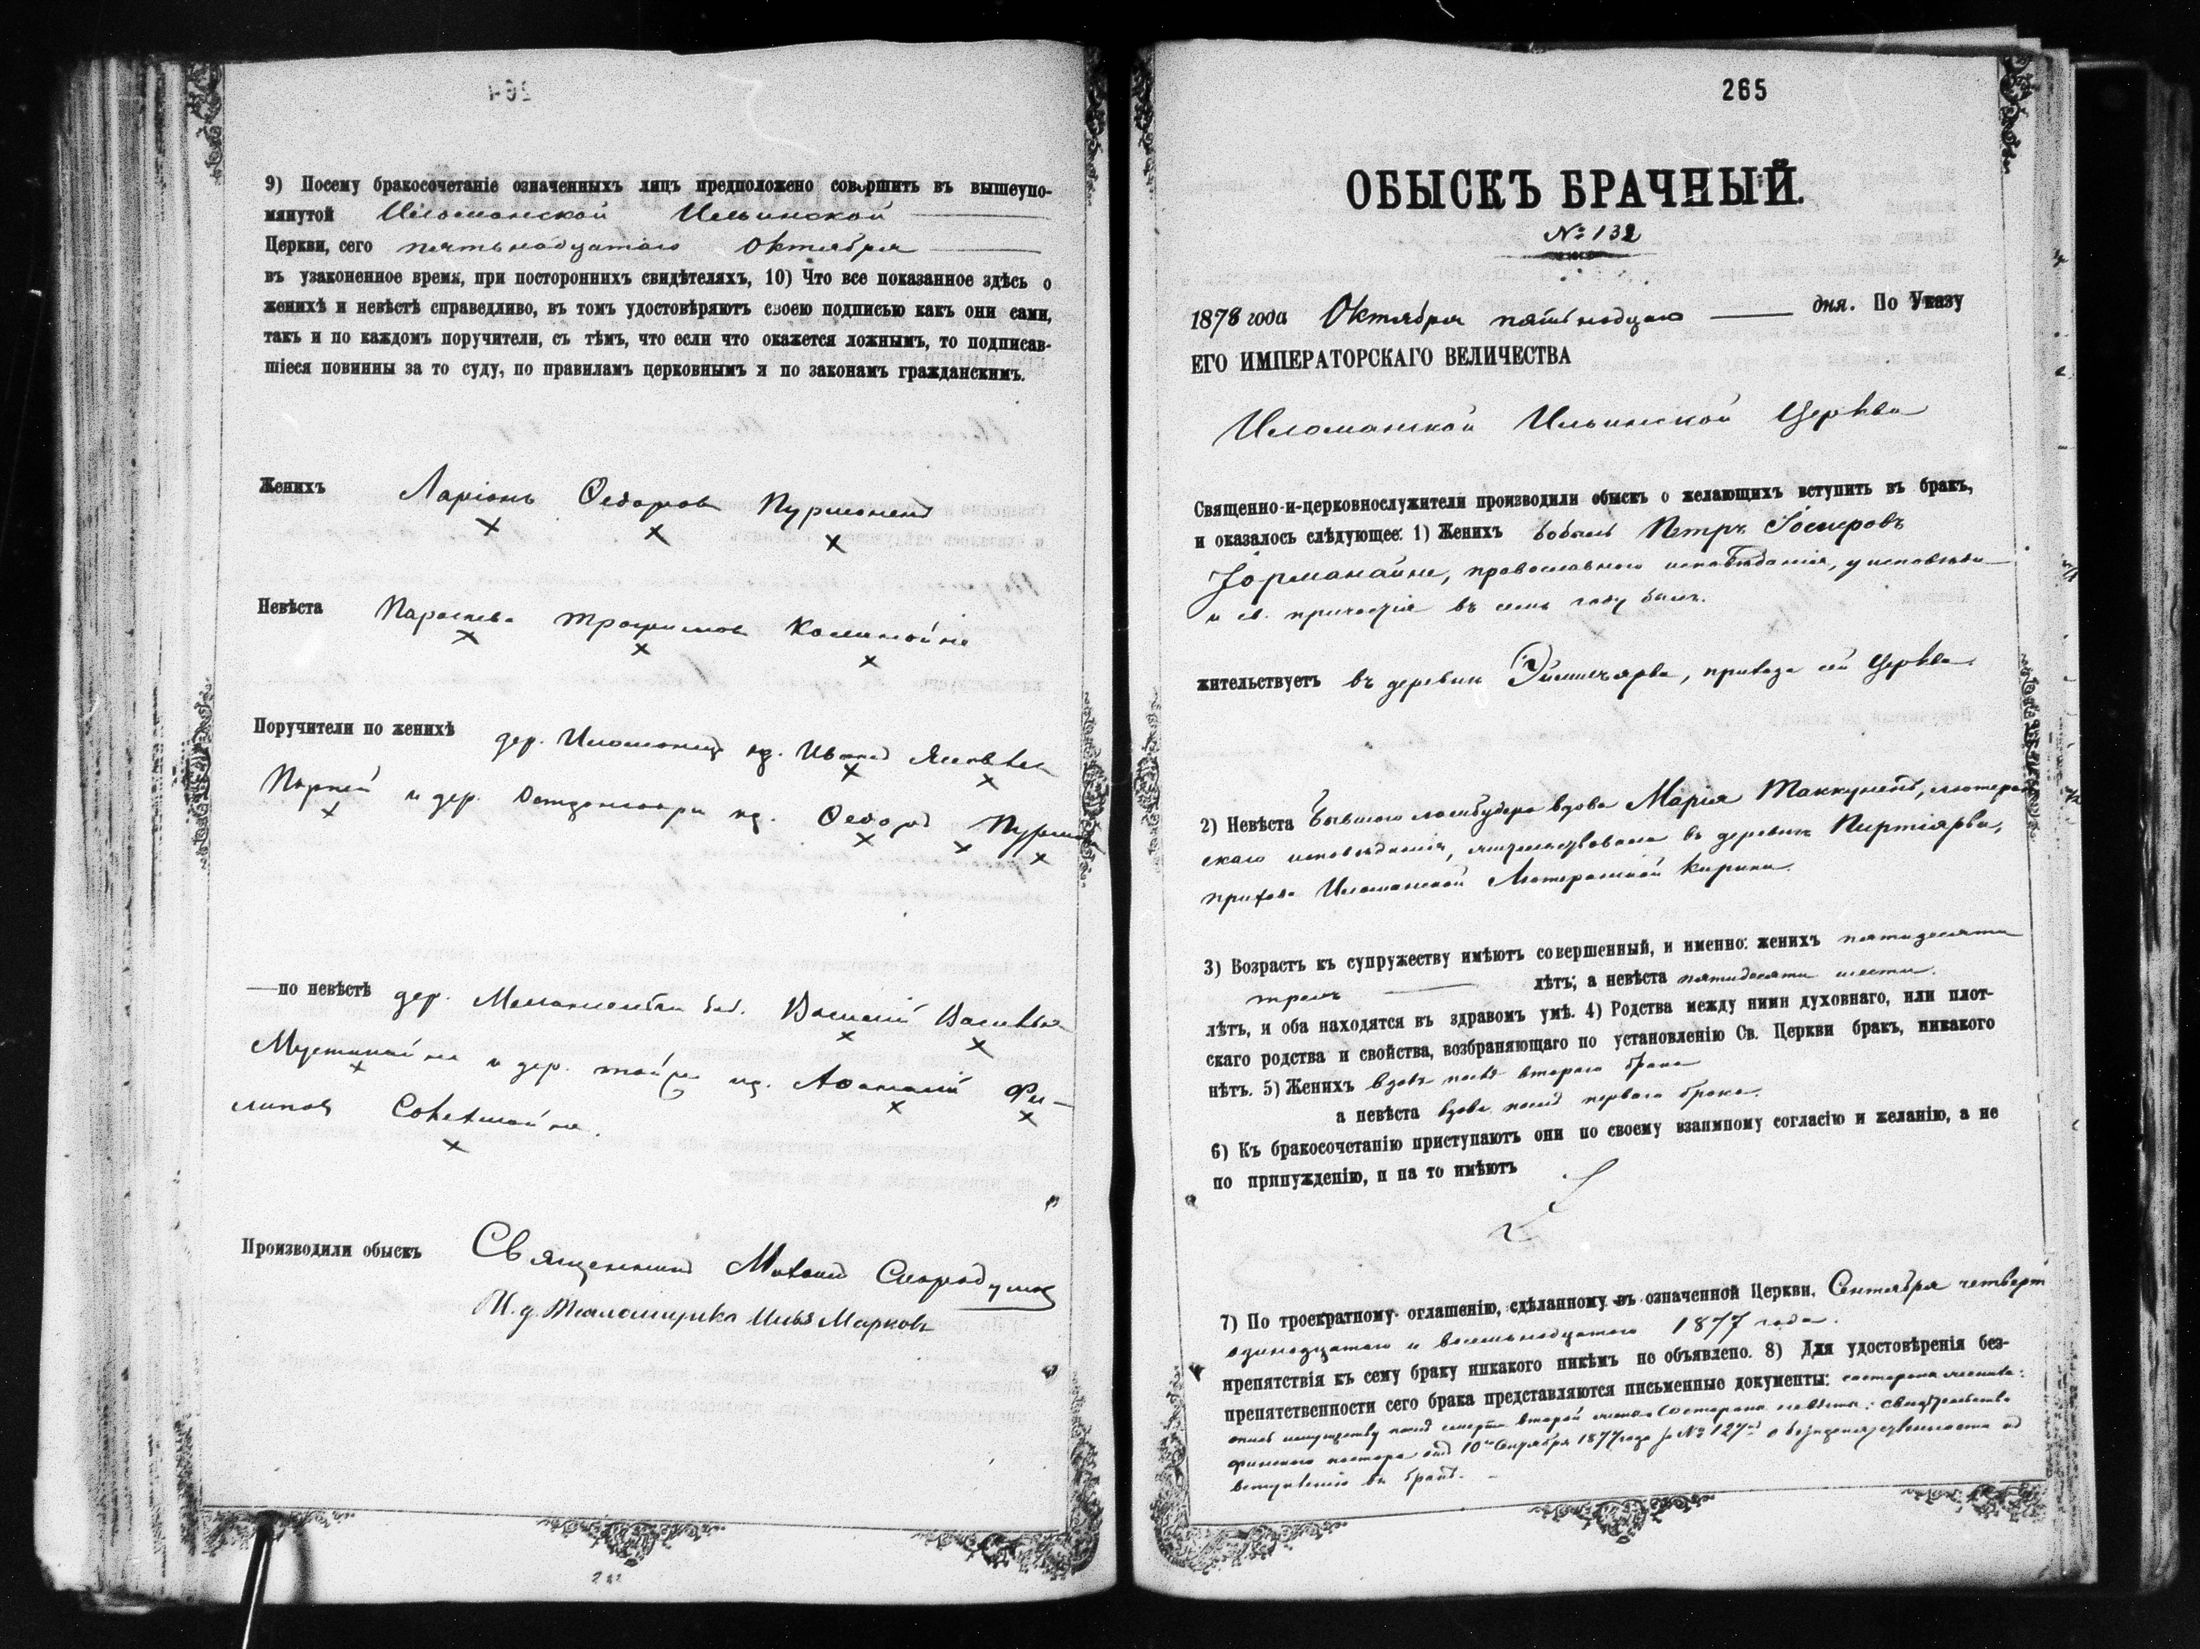 9) Посему бракосочетаніе означенныхъ лицъ предположено совершить въ вышеупо-
мянутой Иломанской Ильинской
Церкви, сего пятьнадцатаго Октября
въ узаконенное время, при постороннихъ свидѣтеляхъ, 10) Что все показанное здѣсь о
женихѣ и невѣстѣ справедливо, въ томъ удостовѣряютъ своею подписью какъ они сами,
такъ и по каждомъ поручители, съ тѣмъ, что если что окажется ложнымъ, то подписав-
шіеся повинны за то суду, по правиламъ церковнымъ и по законамъ гражданскимъ.
Женихъ Ларіонъ Ѳедоровъ Пурмонен
× × ×
Невѣста Параскева Трофимова
× × ×
Поручители по женихѣ дер. Иломанцъ кр. Иванъ Яковлев
× ×
и дер. кр. Ѳедоръ
× × × ×
по невѣстѣ дер. боб. Василій Васильев
× ×
Мустанайне и дер. кр. Аѳанасій Фи-
× × ×
липов
×
Производили обыскъ Священникъ Михаилъ Скородумов
И. д. Псаломщика Илья Марковъ
265
ОБЫСКЪ БРАЧНЫЙ.
№ 132
1878 года Октября пятьнадцаго дня. По Указу
ЕГО ИМПЕРАТОРСКАГО ВЕЛИЧЕСТВА
Иломанской Ильинской Церкви
Священно-и-церковнослужители производили обыскъ о желающихъ вступить въ бракъ,
и оказалось слѣдующее: 1) Женихъ бобыль Петръ
Горманайне, православнаго исповѣданія, у исповѣди
и св. причастія въ семъ году былъ.
жительствуетъ въ деревни прихода сей Церкви.
2) Невѣста бывшаго вдова Марія Таккунен, лютеран
скаго исповѣданія, жительствовала въ деревни
прихода Иломанской Лютеранской Кирки.
3) Возрастъ къ супружеству имѣютъ совершенный, и именно: женихъ пятидесяти
трехъ лѣтъ; а невѣста пятидесяти шести
лѣтъ, и оба находятся въ здравомъ умѣ. 4) Родства между ними духовнаго, или плот-
скаго родства и свойства, возбраняющаго по установленію Св. Церкви бракъ, никакого
нѣтъ. 5) Женихъ вдовъ послѣ втораго брака
а невѣста вдова послѣ перваго брака.
6) Къ бракосочетанію приступаютъ они по своему взаимному согласію и желанію, а не
по принужденію, и на то имѣютъ
7) По троекратному оглашенію, сдѣланному въ означенной Церкви, Сентября четверт
одинадцатаго и восемьнадцатаго 1877 года.
препятствія къ сему браку никакого никѣмъ не объявлено. 8) Для удостовѣренія без-
препятственности сего брака представляются письменные документы: со стороны жениха:
опись имуществу послѣ смерти второй жены со стороны невѣсты: свидѣтельство
финскаго пастора отъ 10го 1877 года за № 127 о безпрепятственности
вступленію въ бракъ.